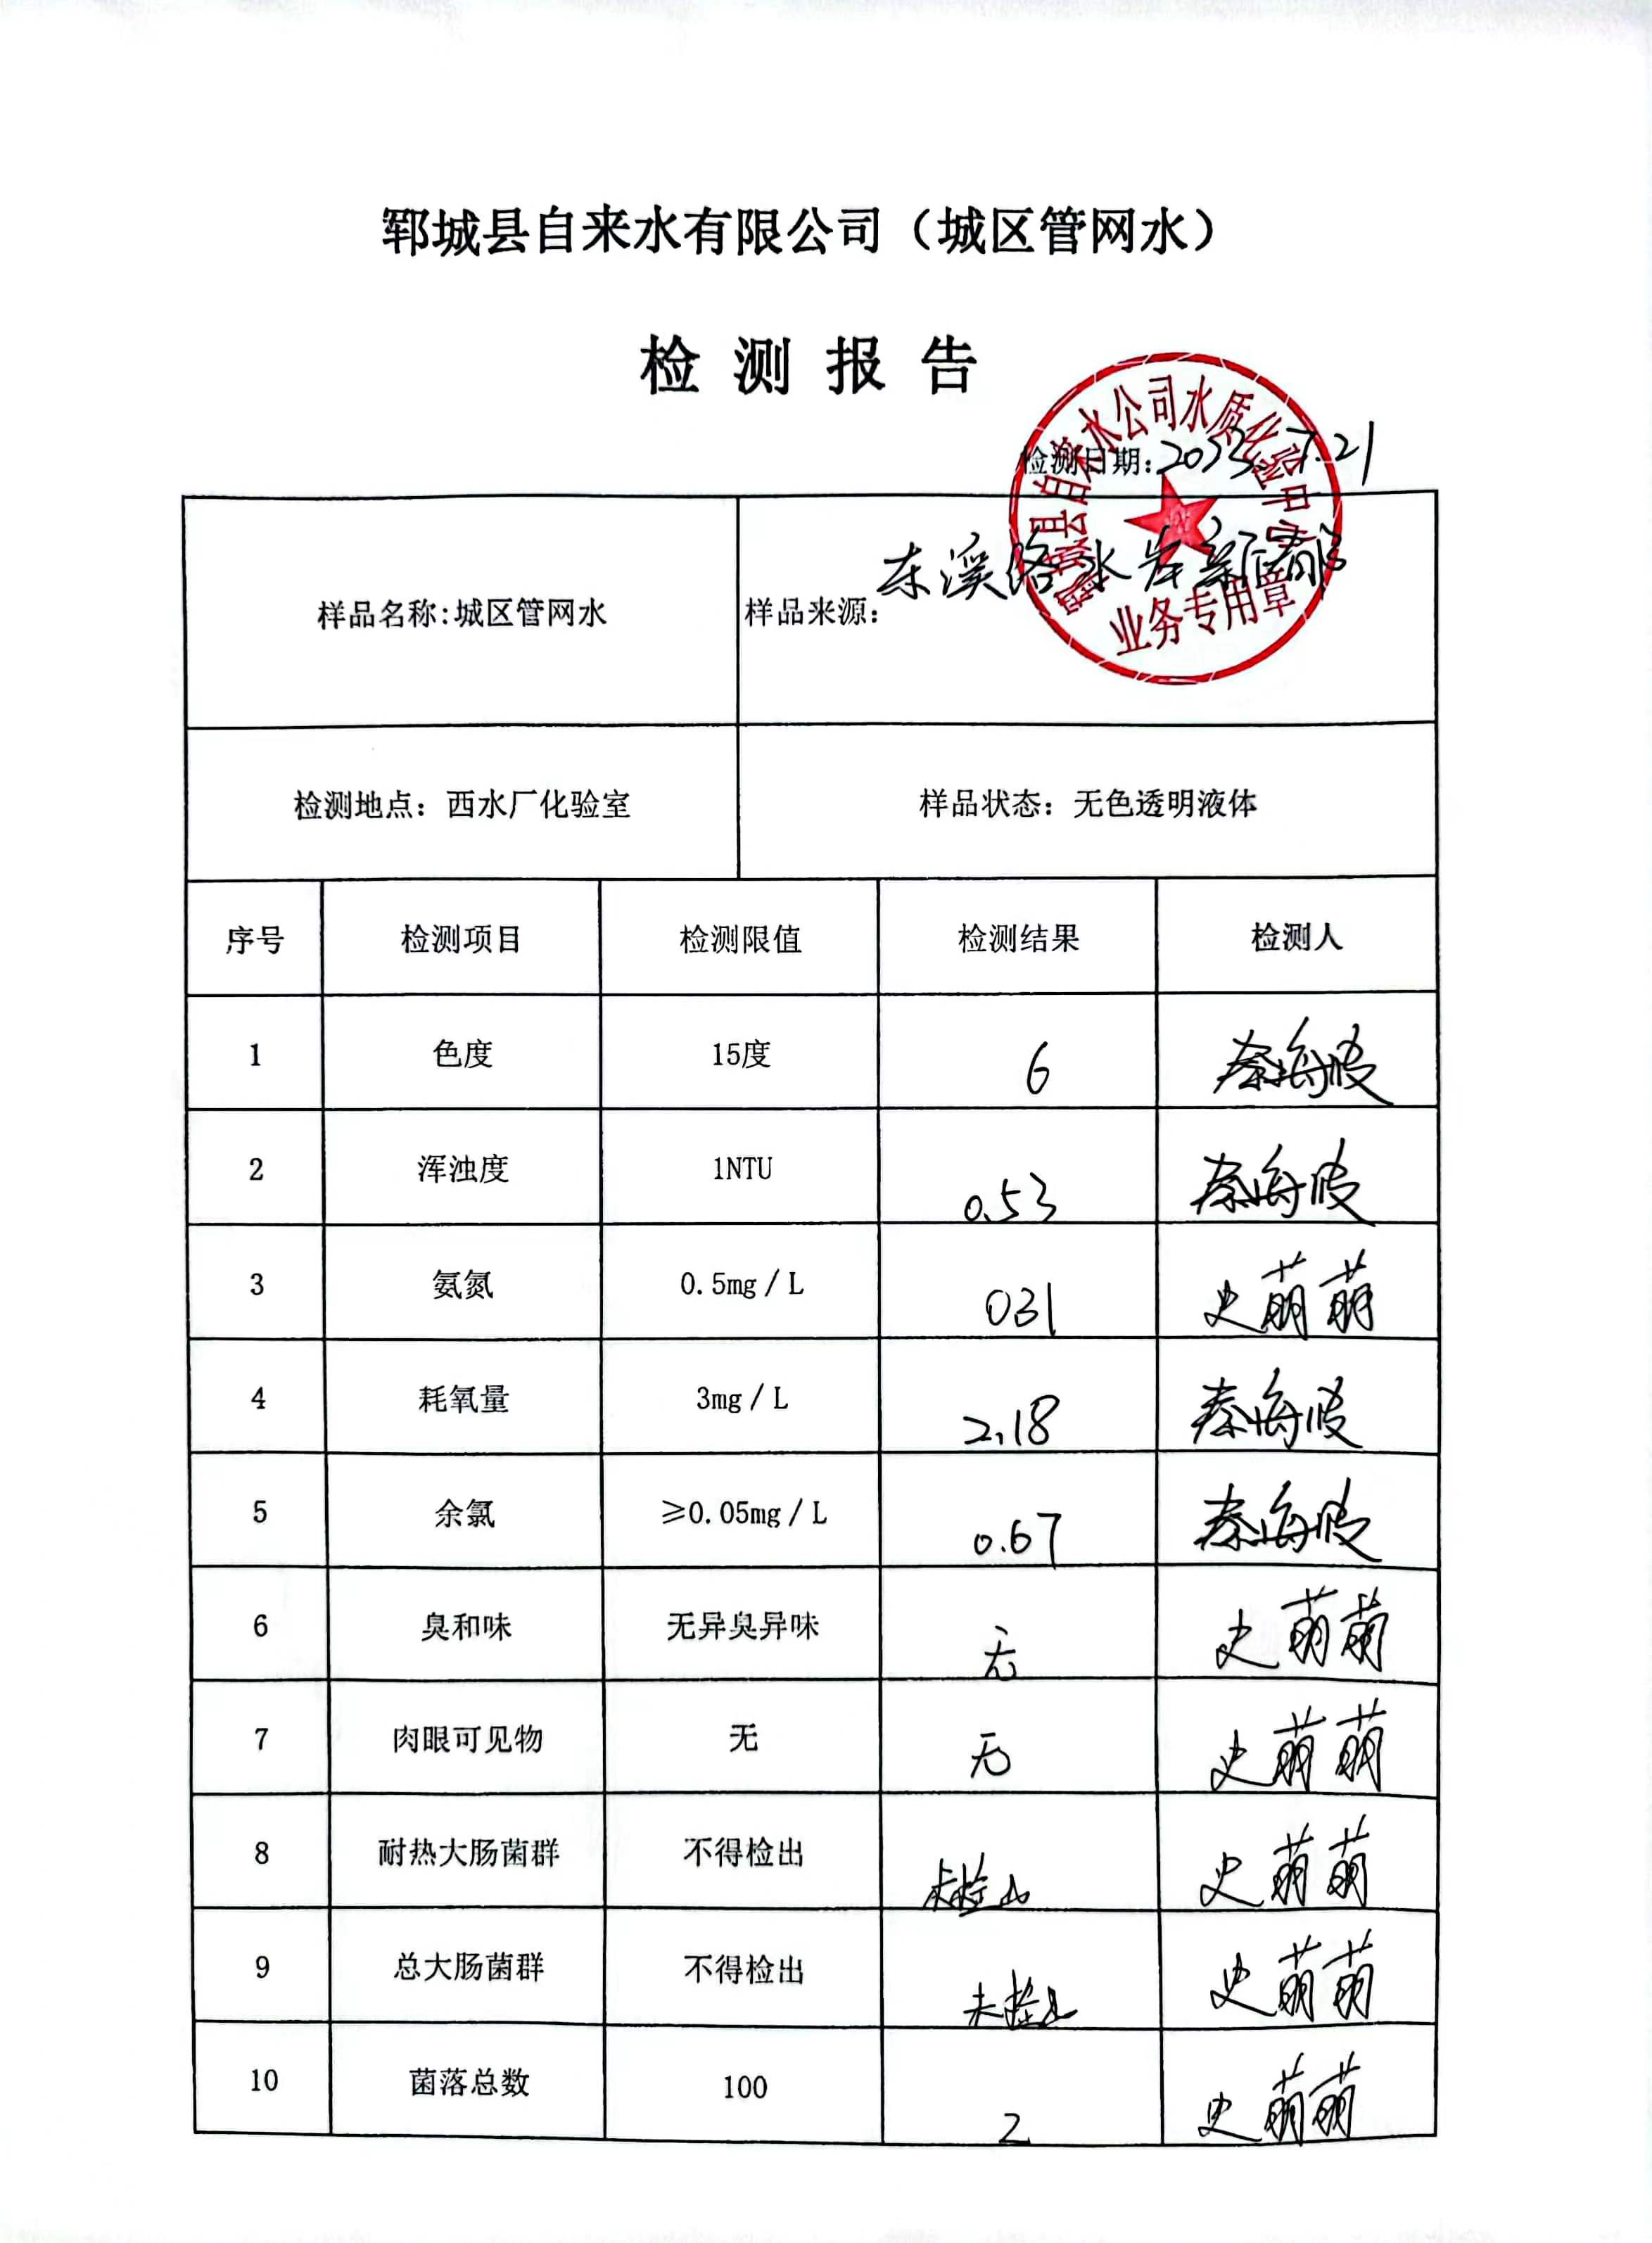 郓城县自来水有限公司（城区管网水）
检测报告
检测日期：2023.7.21
样品名称:城区管网水 样品来源：东溪路水岸新都
检测地点：西水厂化验室 样品状态：无色透明液体
序号 检测项目 检测限值 检测结果 检测人
1 色度 15度 6 秦海波
2 浑浊度 1NTU 0.53 秦海波
3 氨氮 0.5mg／L 031 史萌萌
4 耗氧量 3mg／L 2.18 秦海波
5 余氯 ≥0.05mg／L 0.67 秦海波
6 臭和味 无异臭异味 无 史萌萌
7 肉眼可见物 无 无 史萌萌
8 耐热大肠菌群 不得检出 未检出 史萌萌
9 总大肠菌群 不得检出 未检出 史萌萌
10 菌落总数 100 2 史萌萌
业务专用章